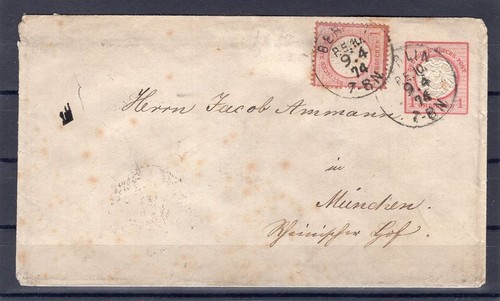 BER
P.E.
9 4
74
7-8N
BERLIN
P.E.
9 4
74
7-8N
1
1
Herrn Jacob Ammann
in
München.
Rheinischer Hof.